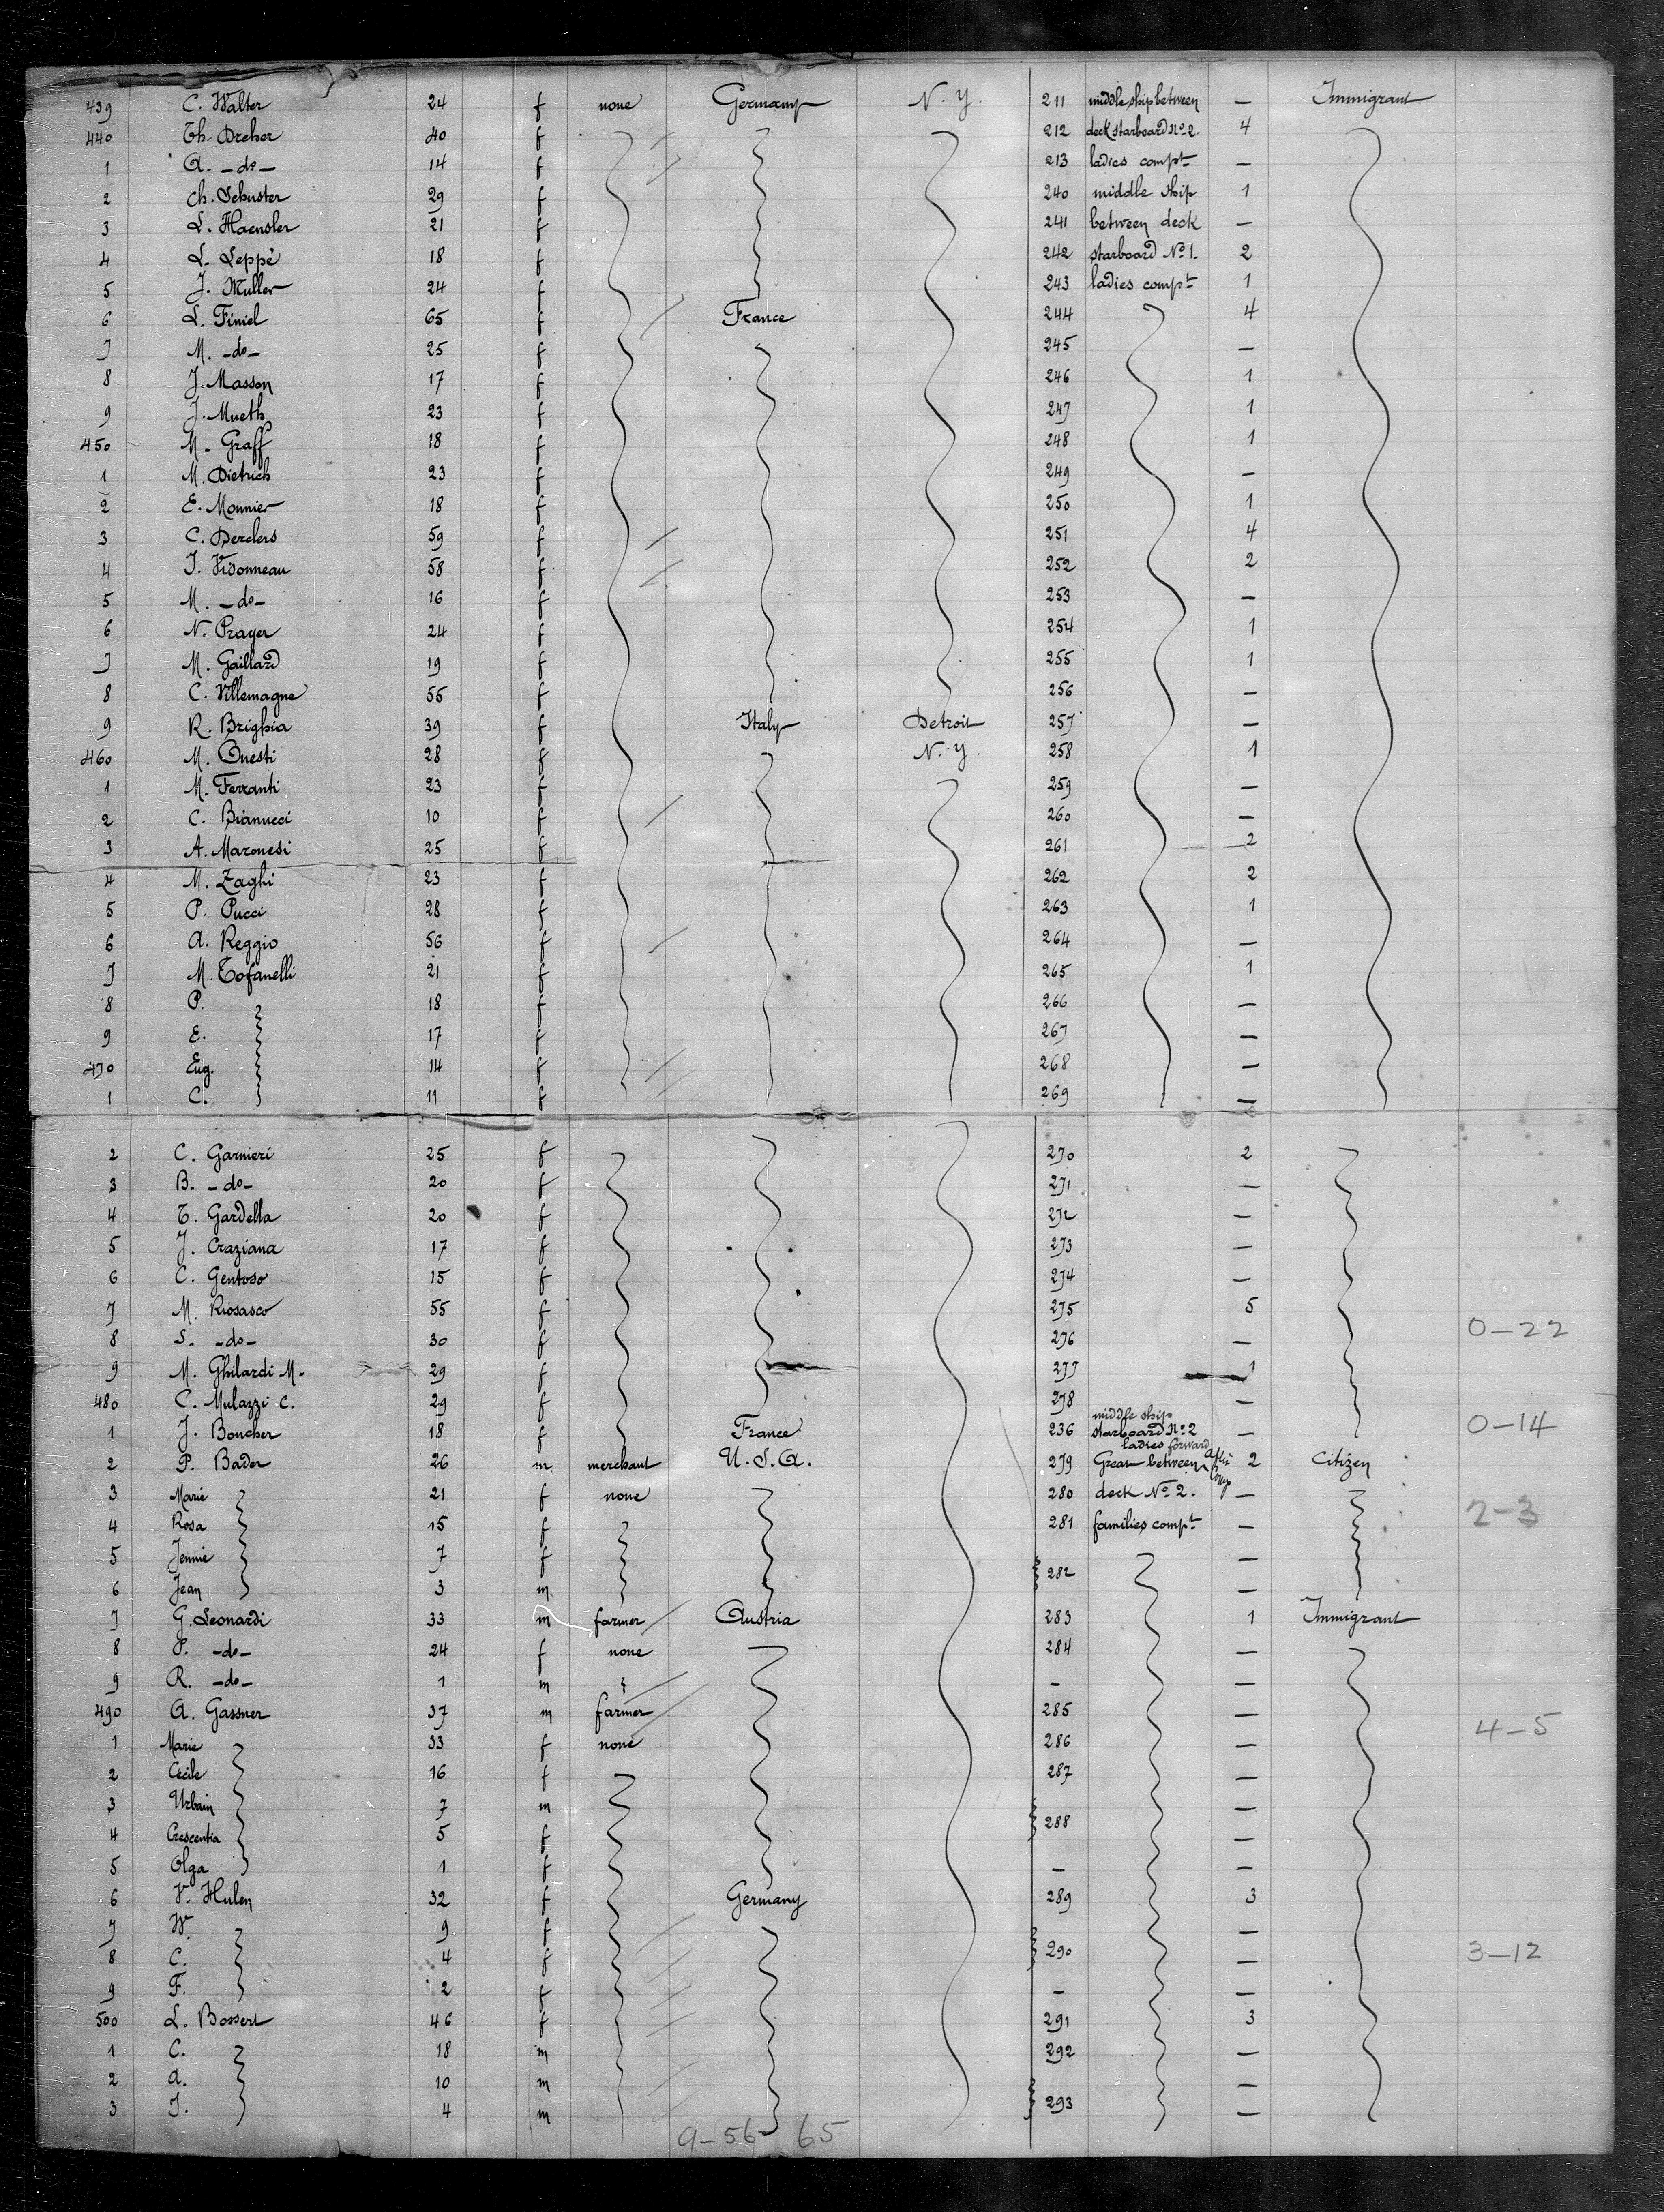 439 C. Walter 24 f none Germany N. Y. 211 middle ship between — Immigrant
440 Th. Dreher 40 f 212 deck starboard No 2 4
1 A. -do- 14 f 213 ladies compt —
2 Ch. Schuster 29 f 240 middle ship 1
3 L. Haensler 21 f 241 between deck —
4 L. Leppé 18 f 242 starboard No 1. 2
5 J. Muller 24 f 243 ladies compt 1
6 L. Finiel 65 f France 244 4
7 M. -do- 25 f 245 —
8 J. Masson 17 f 246 1
9 J. Mueth 23 f 247 1
450 M. Graff 18 f 248 1
1 M. Dietrich 23 f 249 —
2 E. Monnier 18 f 250 1
3 C. Derclers 59 f 251 4
4 J. Visonneau 58 f 252 2
5 M. -do- 16 f 253 —
6 N. Prayer 24 f 254 1
7 M. Gaillard 19 f 255 1
8 C. Villemagne 55 f 256 —
9 R. Brighia 39 f Italy Detroit 257 —
460 M. Onesti 28 f N. Y. 258 1
1 M. Ferranti 23 f 259 —
2 C. Biannucci 10 f 260 —
3 A. Maronesi 25 f 261 2
4 M. Zaghi 23 f 262 2
5 P. Pucci 28 f 263 1
6 A. Reggio 56 f 264 —
7 M. Tofanelli 21 f 265 1
8 P. 18 f 266 —
9 E. 17 f 267 —
470 Eug. 14 f 268 —
1 C. 11 f 269 —
2 C. Garnieri 25 f 270 2
3 B. -do- 20 f 271 —
4 T. Gardella 20 f 272 —
5 J. Craziana 17 f 273 —
6 C. Gentoso 15 f 274 —
7 M. Riosasco 55 f 275 5
8 S. -do- 30 f 276 — 0-22
9 M. Ghilardi M. 29 f 277 1
480 C. Mulazzi C. 29 f 278 —
1 J. Boucher 18 f France 236 middle ship starboard No 2 ladies forward — 0-14
2 P. Bader 26 m merchant U. S. A. 279 Great between 2 Citizen
3 Marie 21 f none 280 deck No 2. —
4 Rosa 15 f 281 families compt — 2-3
5 Jennie 7 f 282 —
6 Jean 3 m —
7 G. Leonardi 33 m farmer Austria 283 1 Immigrant
8 P. -do- 24 f none 284 —
9 R. -do- 1 m — —
490 A. Gassner 37 m farmer 285 —
1 Marie 33 f none 286 — 4-5
2 Cécile 16 f 287 —
3 Urbain 7 m 288 —
4 Crescentia 5 f —
5 Olga 1 f — —
6 V. Hulen 32 f Germany 289 3
7 W. 9 f 290 —
8 C. 4 f — 3-12
9 F. 2 f — —
500 L. Bossert 46 f 291 3
1 C. 18 m 292 —
2 A. 10 m 293 —
3 J. 4 m —
9-56 65